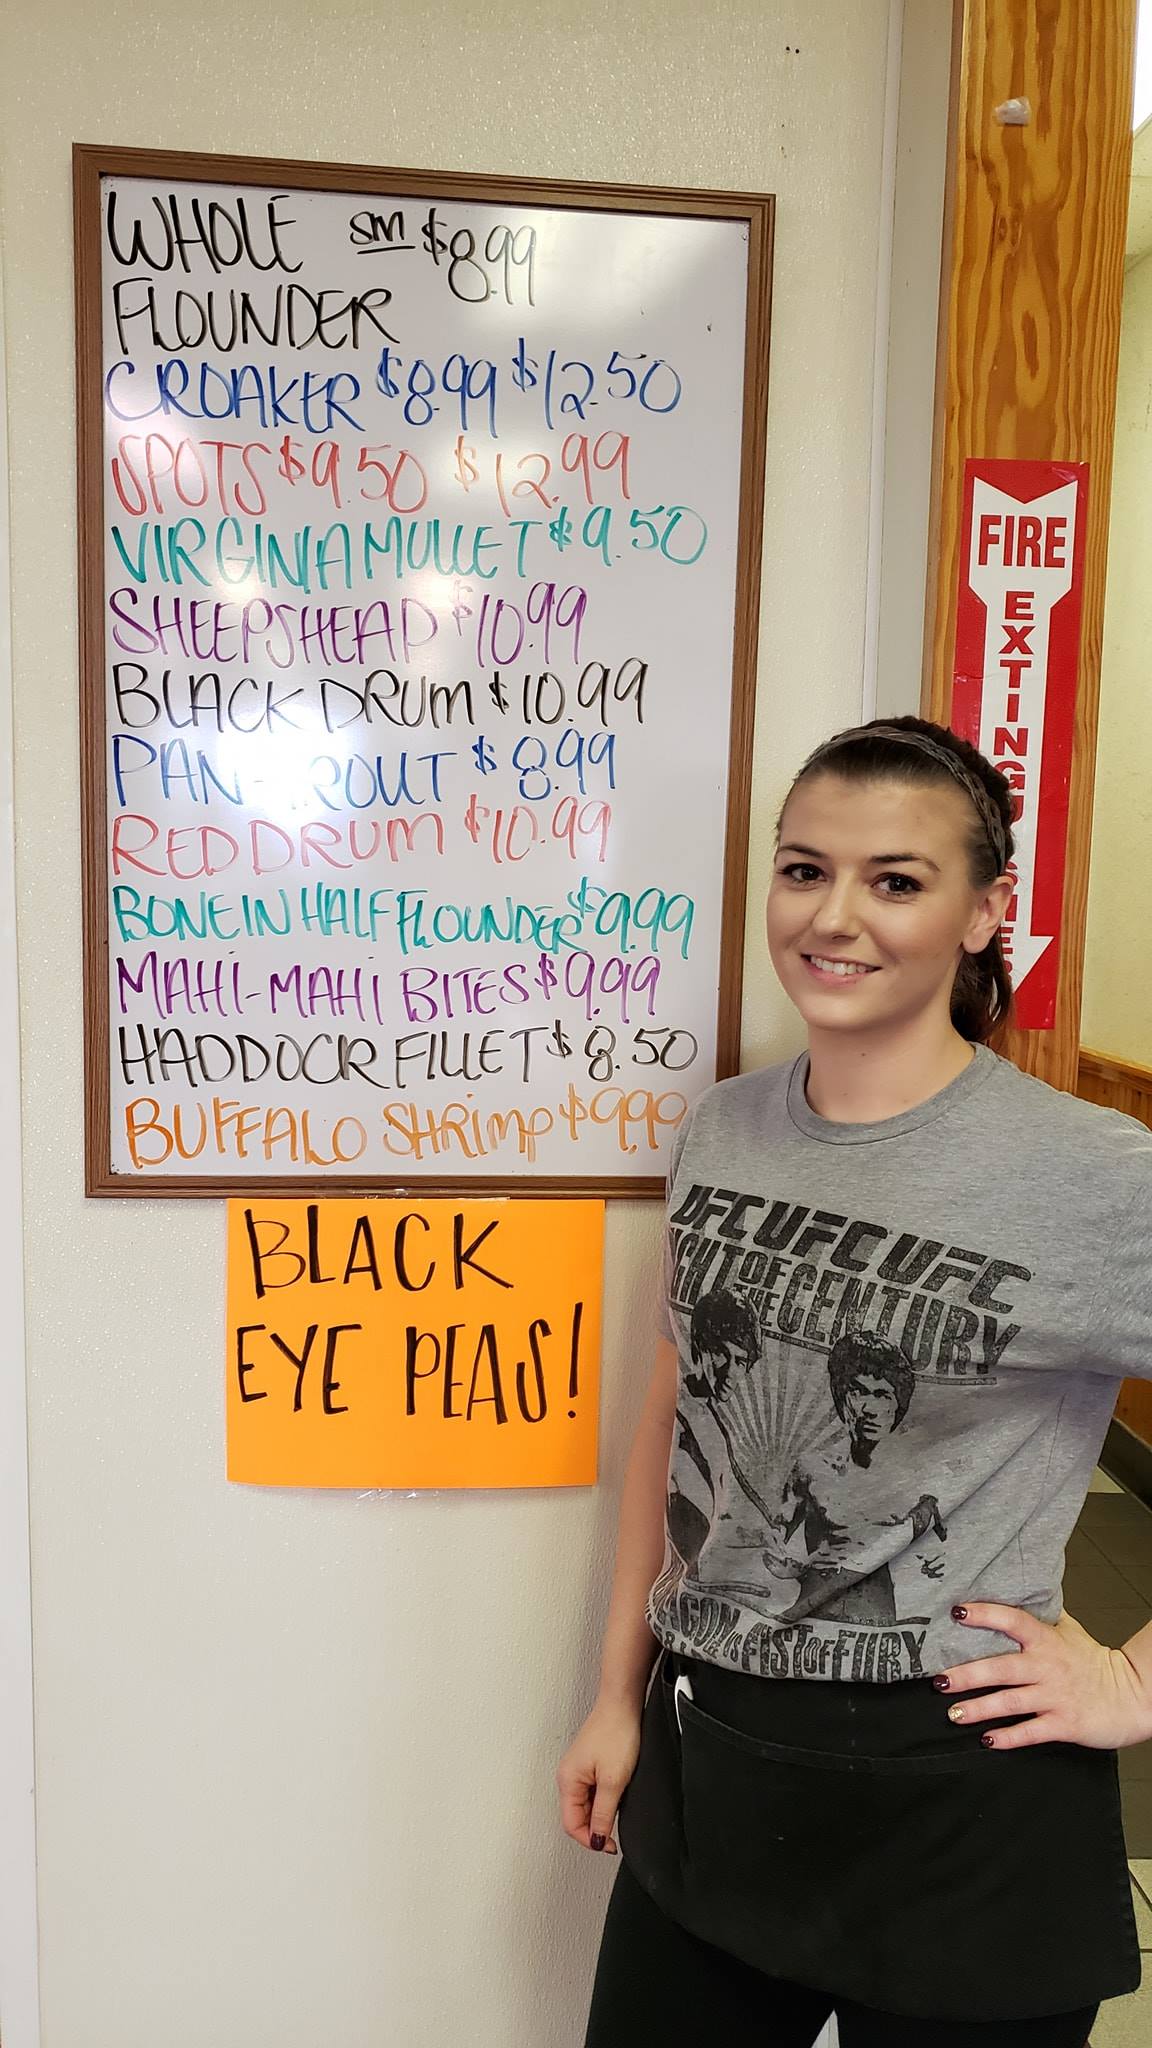 WHOLE SM $8.99
FLOUNDER
CROAKER $8.99 $12.50
SPOTS $9.50 $12.99
VIRGINIA MULLET $9.50
SHEEPSHEAD $10.99
BLACK DRUM $10.99
PAN TROUT $8.99
RED DRUM $10.99
BONE IN HALF FLOUNDER $9.99
MAHI-MAHI BITES $9.99
HADDOCK FILLET $8.50
BUFFALO SHRIMP $9.99
BLACK
EYE PEAS!
FIRE
EXTINGUISHER
UFC UFC UFC
OF THE CENTURY
FIST OF FURY